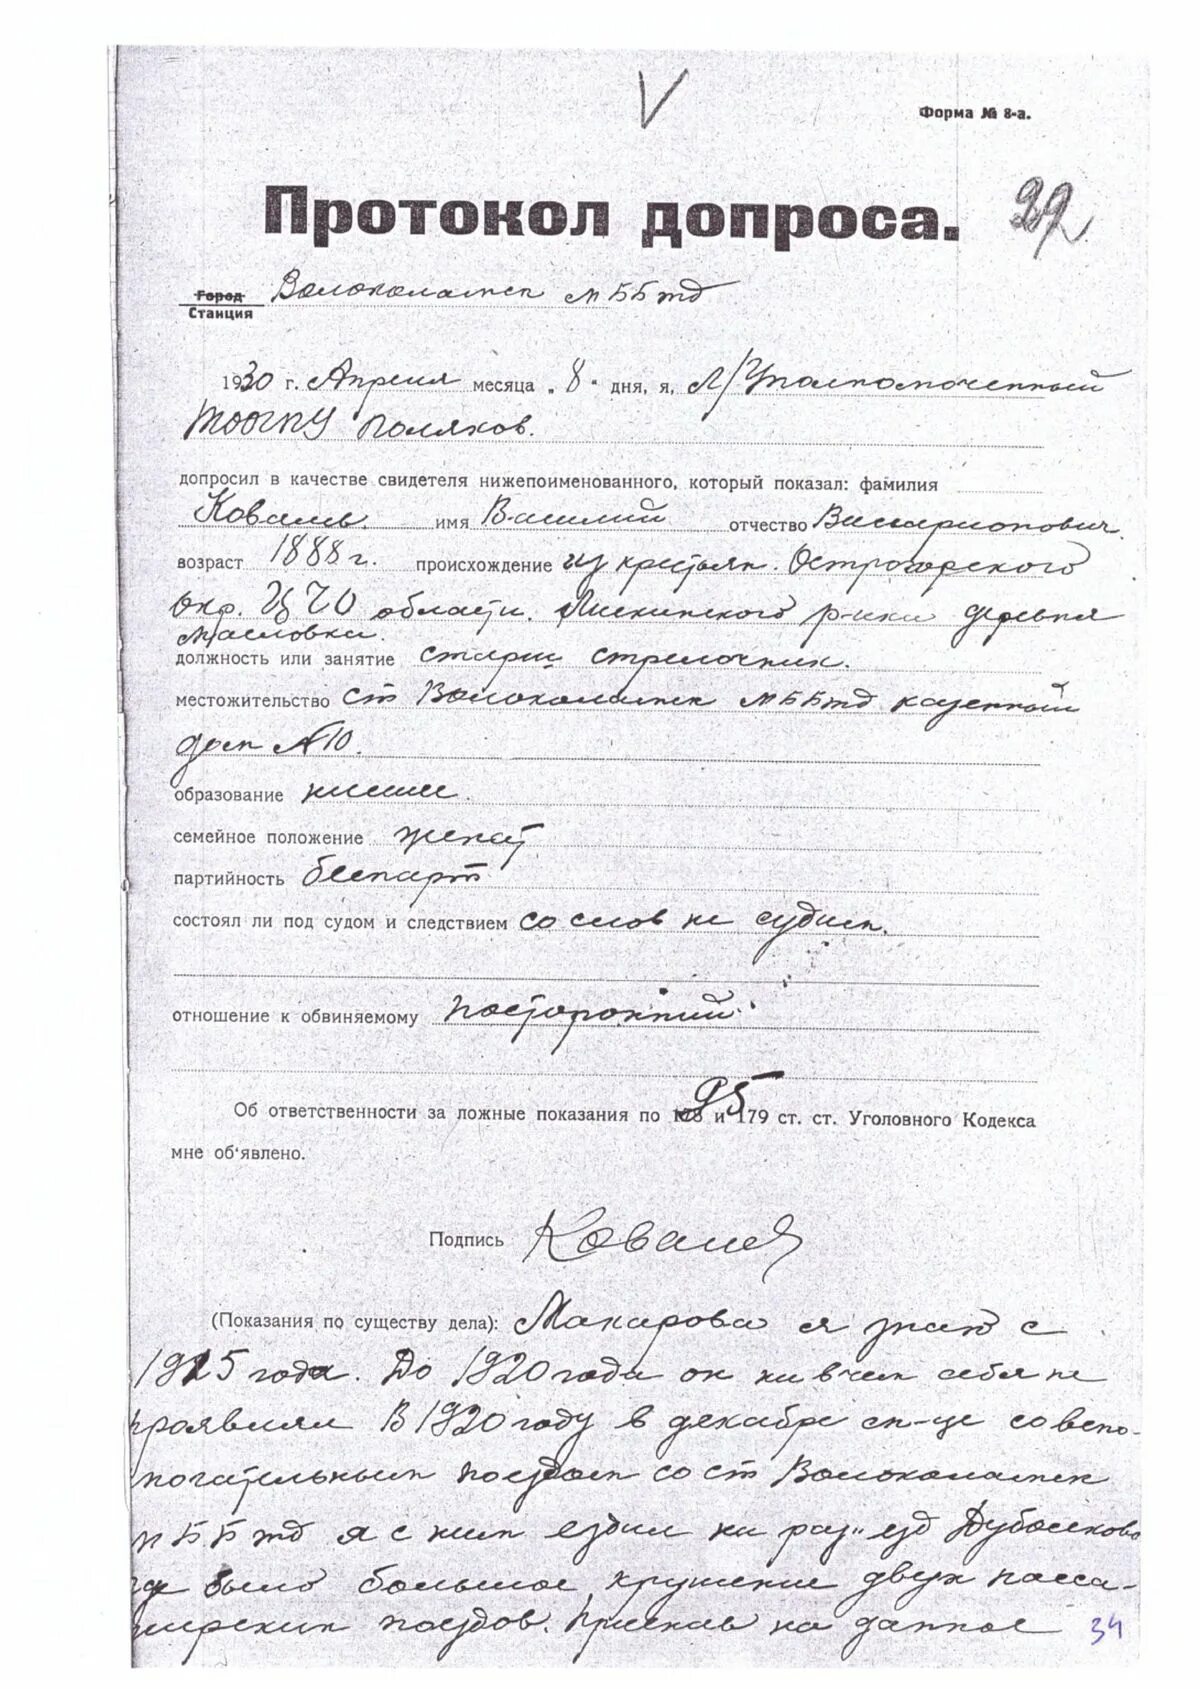 V
Форма № 8-а.
Протокол допроса.
Город Волоколамск МББжд
Станция
1930 г. Апреля месяца „8“ дня, я, Уполномоченный
ТООГПУ Поляков.
допросил в качестве свидетеля нижепоименованного, который показал: фамилия
Коваль. имя Василий отчество Виссарионович.
возраст 1888 г. происхождение из крестьян. Острогорского
окр. ЦЧО области. Лискинского р-на деревня
Масловка.
должность или занятие старш стрелочник.
местожительство ст Волоколамск МББжд казенный
дом №10.
образование низшее.
семейное положение женат
партийность беспарт
состоял ли под судом и следствием со слов не судим.
отношение к обвиняемому посторонний.
Об ответственности за ложные показания по 178 и 179 ст. ст. Уголовного Кодекса
95
мне об‘явлено.
Подпись Коваль
(Показания по существу дела): Макарова я знаю с
1915 года. До 1920 года он ни в чем себя не
проявлял В 1920 году в декабре м-це со вспо-
могательным поездом со ст Волоколамск
МББжд я с ним ездил на раз"езд Дубосеково
где было большое крушение двух пасса-
жирских поездов. Приехав на данное
34